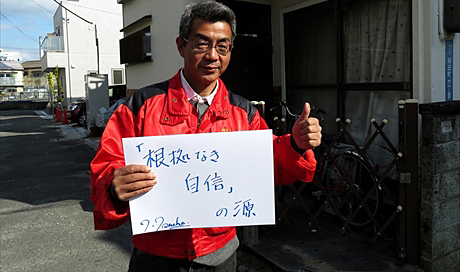 「根拠なき
自信」
の源